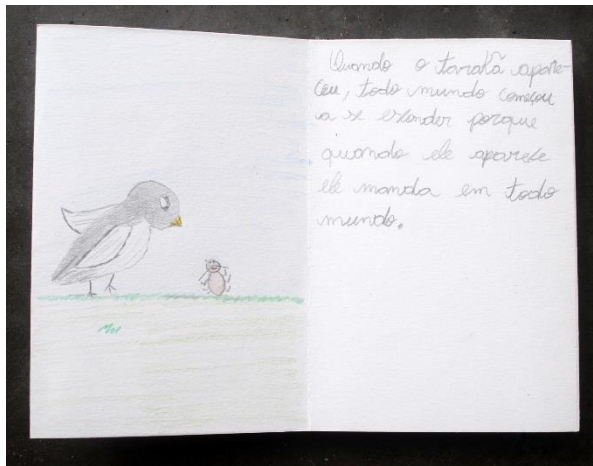 Quando o tarakã apare-
ceu, todo mundo começou
a se exonder porque
quando ele aparece
ele manda em todo
mundo.